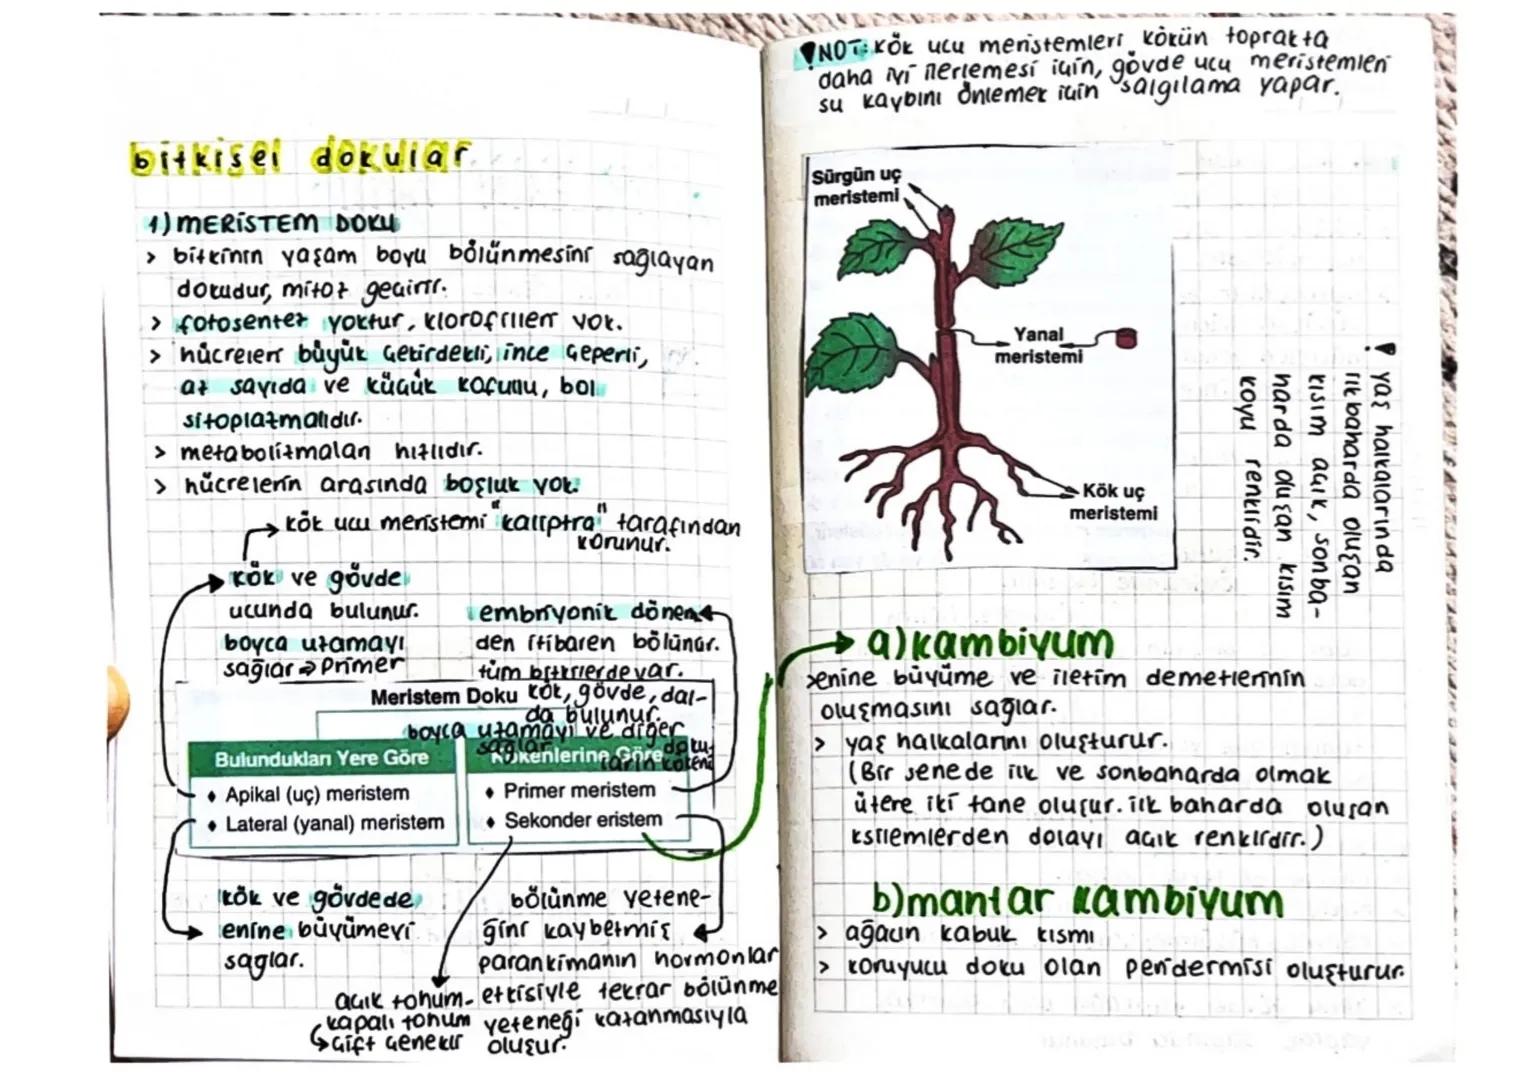 bitkisel dokular
1) MERİSTEM DOKU
> bitkinin yaşam boyu bölünmesini sağlayan
dokudur, mitoz geçirir.
> fotosentez yoktur, klorofilleri yok.
> hücreleri büyük çekirdekli, ince çeperli,
az sayıda ve küçük kofullu, bol
sitoplazmalıdır.
> metabolizmaları hızlıdır.
> hücrelerin arasında boşluk yok.
kök ucu meristemi "kaliptra" tarafından
korunur.
kök ve gövde
ucunda bulunur.
boyca uzamayı
sağlar → Primer
embriyonik dönem-
den itibaren bölünür.
tüm bitkilerde var.
kök, gövde, dal-
da bulunur.
boyca uzamayı ve diğer
sağlar doku-
ların kökeni
Meristem Doku
Bulundukları Yere Göre
♦ Apikal (uç) meristem
♦ Lateral (yanal) meristem
Kökenlerine Göre
♦ Primer meristem
♦ Sekonder eristem
kök ve gövdede
enine büyümeyi
sağlar.
açık tohum-
kapalı tohum
çift çenekli
bölünme yetene-
ğini kaybetmiş
parankimanın hormonlar
etkisiyle tekrar bölünme
yeteneği kazanmasıyla
oluşur.
NOT: kök ucu meristemleri kökün toprakta
daha iyi ilerlemesi için, gövde ucu meristemleri
su kaybını önlemek için salgılama yapar.
Sürgün uç
meristemi
Yanal
meristemi
Kök uç
meristemi
! yaş halkalarında
ilkbaharda oluşan
kısım açık, sonba-
harda oluşan kısım
koyu renklidir.
a) kambiyum
> enine büyüme ve iletim demetlerinin
oluşmasını sağlar.
> yaş halkalarını oluşturur.
(Bir senede ilk ve sonbaharda olmak
üzere iki tane oluşur. ilk baharda oluşan
ksilemlerden dolayı açık renklidir.)
b) mantar kambiyum
> ağacın kabuk kısmı
> koruyucu doku olan peridermisi oluşturur